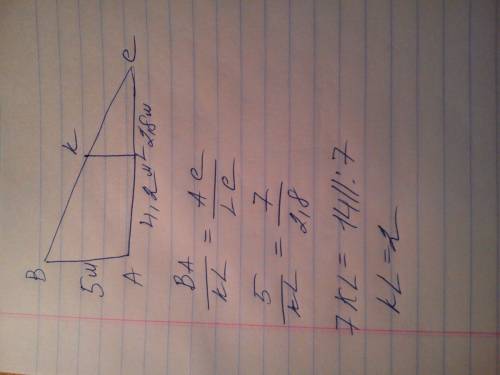 B
K
C
5м
A
4,2 м L 2,8 м
BA/KL = AC/LC
5/KL = 7/2,8
7KL = 14 ||:7
KL = 2